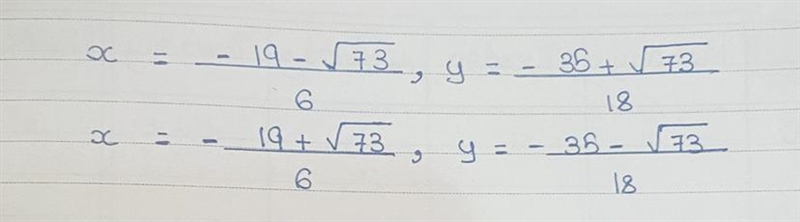 x = - 19 - √73 / 6 , y = - 35 + √73 / 18
x = - 19 + √73 / 6 , y = - 35 - √73 / 18